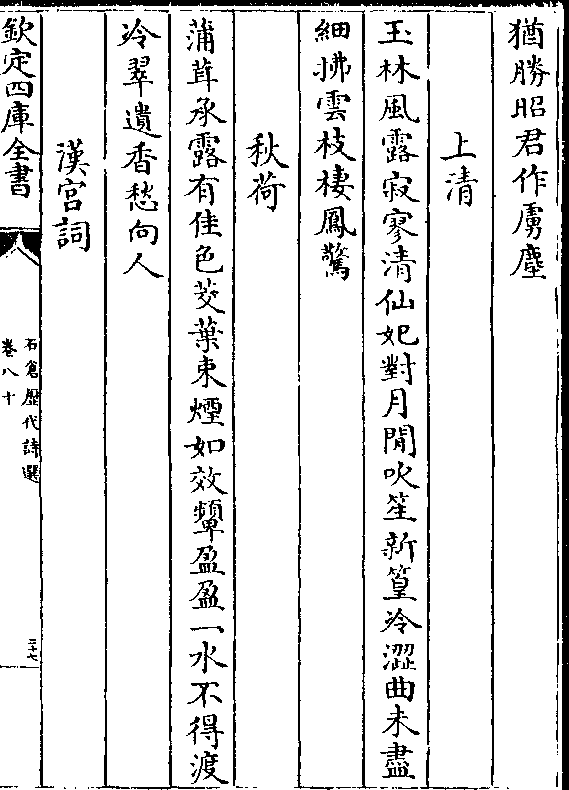 猶勝昭君作虜塵
上清
玉林風露寂寥清仙妃對月閒吹笙新篁冷澀曲未盡
細拂雲枝棲鳳驚
秋荷
蒲茸承露有佳色茭葉束煙如效顰盈盈一水不得渡
冷翠遺香愁向人
漢宮詞
欽定四庫全書
石倉歷代詩選
卷八十
三十七